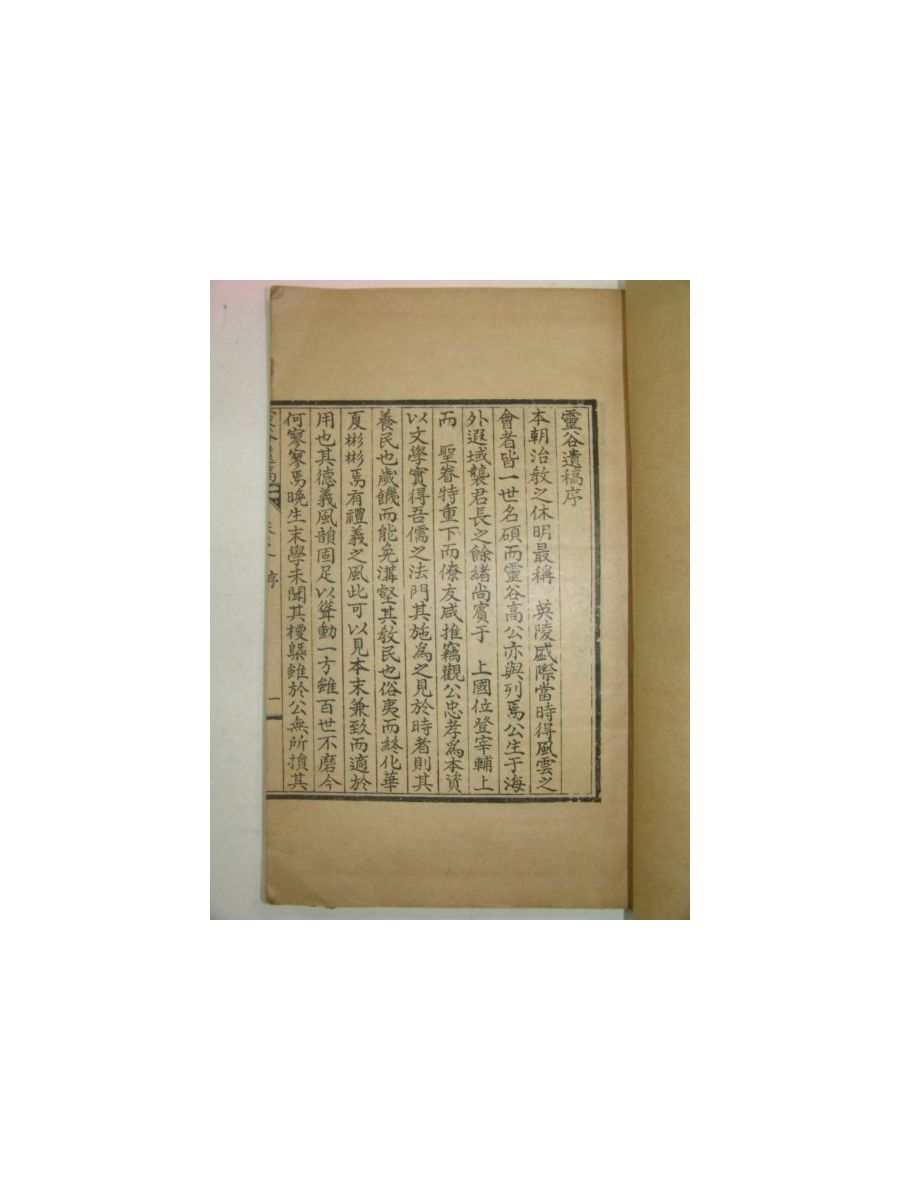 靈谷遺稿序
本朝治教之休明最稱　英陵盛際當時得風雲之
會者皆一世名碩而靈谷高公亦與列焉公生于海
外遐域襲君長之餘緒尚賓于　上國位登宰輔上
而　聖眷特重下而僚友咸推竊觀公忠孝爲本資
以文學實得吾儒之法門其施爲之見於時者則其
養民也歲饑而能免溝壑其教民也俗夷而終化華
夏彬彬焉有禮義之風此可以見本末兼致而適於
用也其德義風韻固足以聳動一方雖百世不磨今
何寥寥焉晩生末學未聞其梗槩雖於公無所損其
序
一